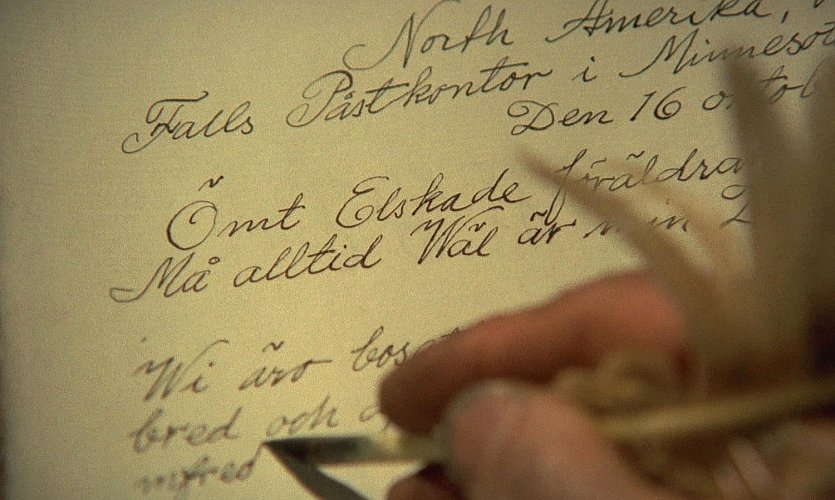 North Amerika,
Falls Påstkontor i Minnesot
Den 16 octob
Ömt Elskade föräldra
Må alltid Wäl är min
Wi äro bosat
bred och